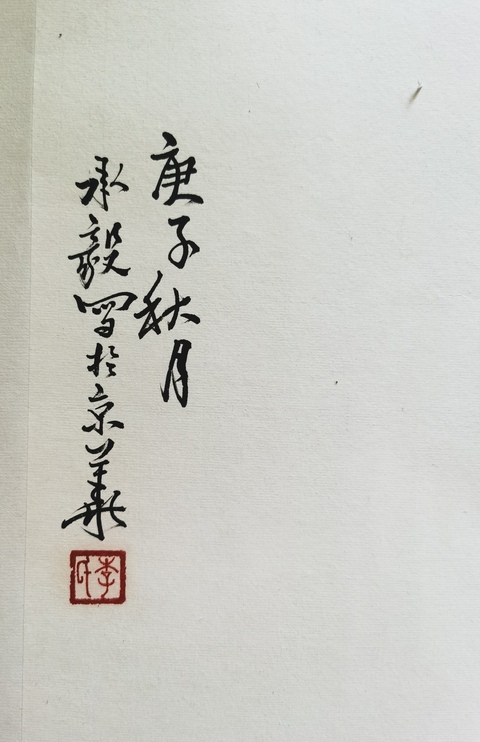 庚子秋月
承毅写於京華
李氏